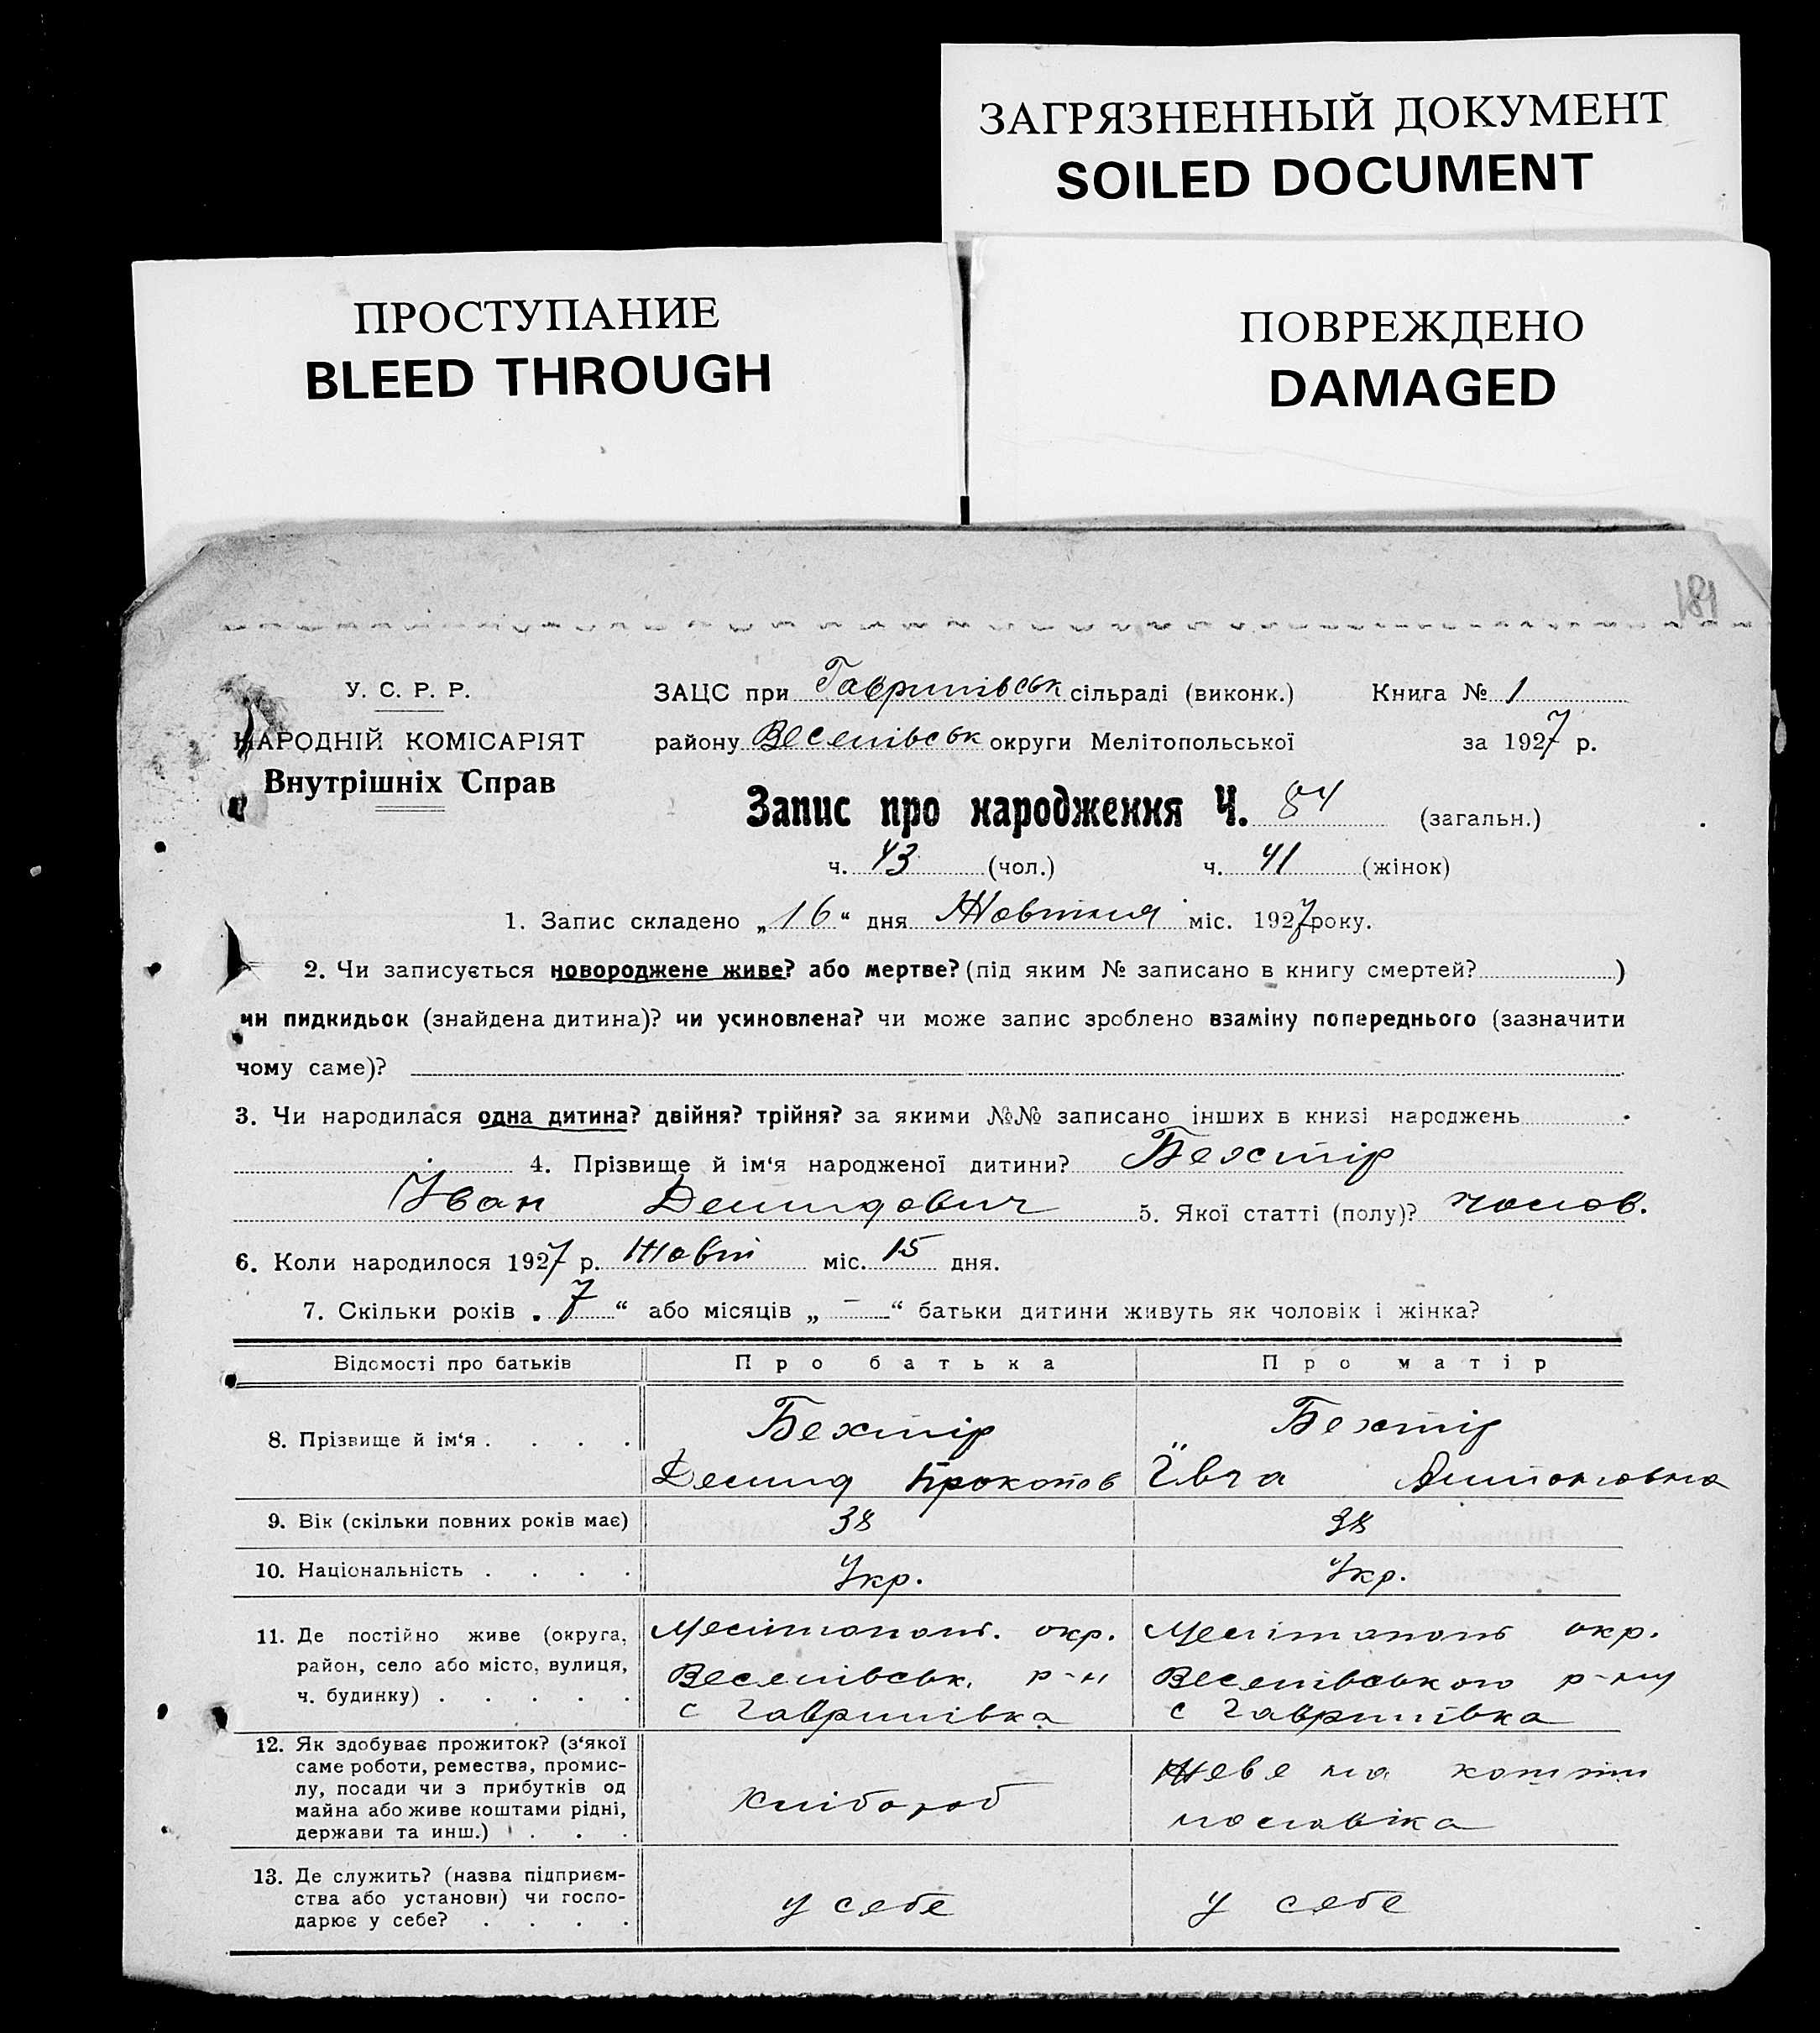 ЗАГРЯЗНЕННЫЙ ДОКУМЕНТ
SOILED DOCUMENT
ПРОСТУПАНИЕ
BLEED THROUGH
ПОВРЕЖДЕНО
DAMAGED
181
У. С. Р. Р.
НАРОДНІЙ КОМІСАРІЯТ
Внутрішніх Справ
ЗАЦС при Гаврилівськ сільраді (виконк.) Книга № 1
району Веселівськ округи Мелітопольської за 1927 р.
Запис про народження Ч. 84 (загальн.)
ч. 43 (чол.) ч. 41 (жінок)
1. Запис складено „16“ дня Жовтня міс. 1927 року.
2. Чи записується новороджене живе? або мертве? (під яким № записано в книгу смертей? )
чи пидкидьок (знайдена дитина)? чи усиновлена? чи може запис зроблено взаміну попереднього (зазначити
чому саме)?
3. Чи народилася одна дитина? двійня? трійня? за якими №№ записано інших в книзі народжень
4. Прізвище й ім‘я народженої дитини? Бехтір
Іван Демидович 5. Якої статті (полу)? чолов.
6. Коли народилося 1927 р. Жовт міс. 15 дня.
7. Скільки років „7“ або місяців „—“ батьки дитини живуть як чоловік і жінка?
Відомості про батьків Про батька Про матір
8. Прізвище й ім‘я . . . . Бехтір Бехтір
Демид Прокопов Антоновна
9. Вік (скільки повних років має) 38 38
10. Національність . . . . Укр. Укр.
11. Де постійно живе (округа, Мелітополь. окр. Мелітополь окр.
район, село або місто, вулиця, Веселівськ. р-н Веселівського р-ну
ч. будинку) . . . . . с Гаврилівка с Гаврилівка
12. Як здобуває прожиток? (з‘якої
саме роботи, ремества, промис-
лу, посади чи з прибутків од
майна або живе коштами рідні,
держави та инш.) . . . Хлібороб Жеве на кошти
чоловіка
13. Де служить? (назва підприєм-
ства або установи) чи госпо-
дарює у себе? . . . . у себе у себе